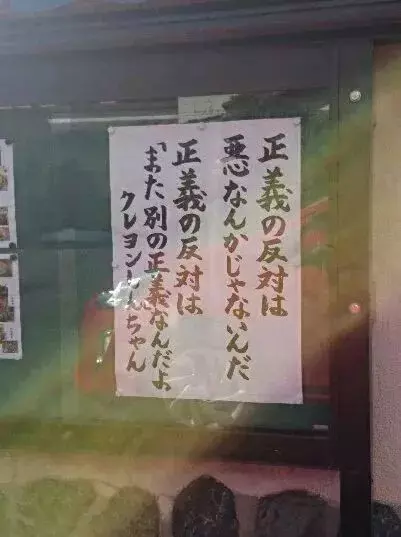 正義の反対は
悪なんかじゃないんだ
正義の反対は
「また別の正義なんだよ」
クレヨンしんちゃん